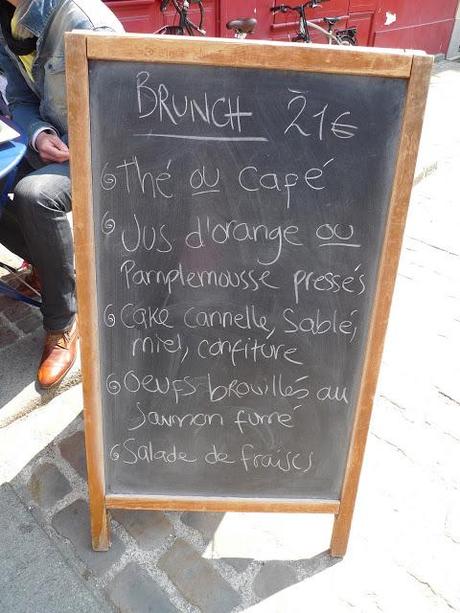 BRUNCH 21€
Thé ou café
Jus d'orange ou
Pamplemousse pressés
Cake cannelle, Sablé,
miel, confiture
Oeufs brouillés au
saumon fumé
Salade de fraises